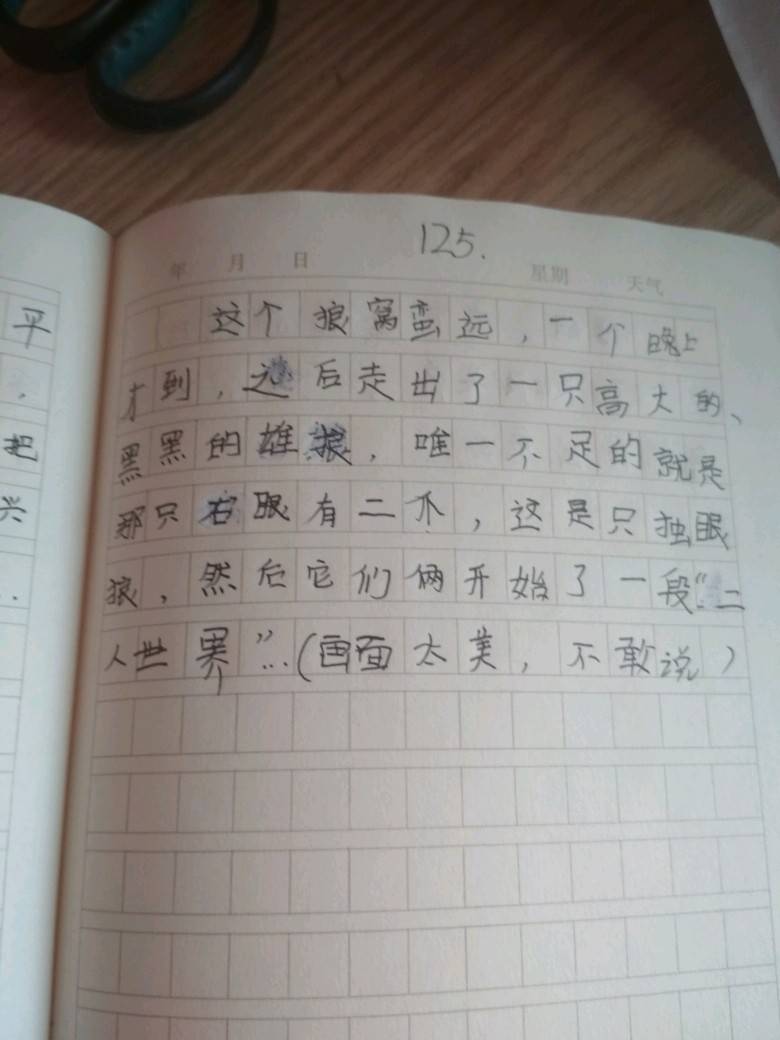 125.
年 月 日 星期 天气
这个狼窝蛮远，一个晚上
才到，之后走出了一只高大的、
黑黑的雄狼，唯一不足的就是
那只右眼有二爪，这是只独眼
狼，然后它们俩开始了一段“二
人世界”…（画面太美，不敢说）
平
，
把
兴